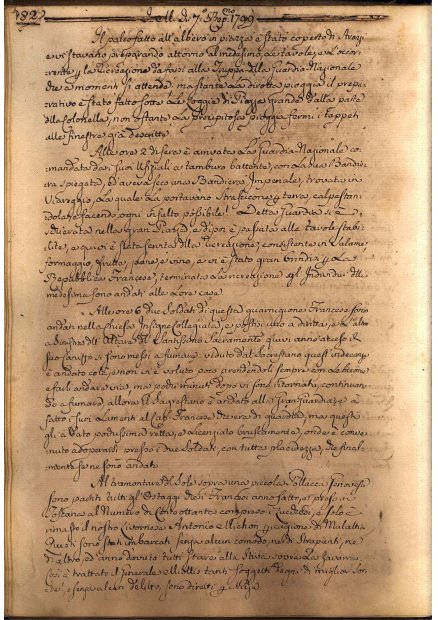 182
Il palco fatto all'albero in piazza è stato coperto di
e vi stavano preparando attorno al medesimo le tavole, e l'occor-
rente p la ricreazione da farsi alla Truppa della Guardia Nazionale
che a momenti si attende, ma stante la dirotta pioggia il prepa-
rativo è stato fatto sotto le Loggie di Piazza grande dalla parte
della Colonella, non ostante la precipitosa pioggia fermi i tappeti
alle finestre già descritte.
Alle ore 2 di sera è arrivata la Guardia Nazionale co-
mandata dai suoi Ufiziali a tamburo battente, con la sua Bandie-
ra spiegata, ed aveva seco una Bandiera Imperiale, trovata in
Viareggio, la quale la portavano strascicone p terra, calpestan-
dola, e facendo ogni insulto possibile. Detta Guardia si è
schierata nella gran Piazza, e di poi è passata alle tavole stabi-
lite, e quivi è stata servita della ricreazione, consistente in Salame
formaggio, frutte, pane, e vino, e vi è stato gran brindisi p la
Repubblica Francese, terminata la ricreazione gl'Individui della
medesima sono andati alle loro case.
Alle ore 6 due Soldati di questa guarnigione Francese sono
andati nella Chiesa Insigne Collegiata, e postisi uno a diritta, e l'altro
a sinistra dell'Altare del Santissimo Sacramento, quivi anno
suo si sono messi a fumare, veduto dal Sagrestano quest'indecenza
è andato colà, e non vi è voluto poco prendendoli sempre con le buone
a farli andare via, ma pochi minuti dopo vi sono ritornati, continuan-
do a fumare, allora il Sagrestano è andato alla Gran guardia, e à
fatto i suoi lamenti al Capo Francese che era di quardia, ma questo
gli à dato pochissima retta, e licenziato bruscamente, onde è conve-
nuto adoperarsi presso i due Soldati, con tutta placidezza, che final-
mente se ne sono andati.
Al tramontare del Sole sopra una piccola
sono partiti tutti gl'Ostaggi che i Francesi anno fatto, e preso in
Toscana al Numero di Cento ottanta compreso i Livornesi, e solo è
rimasto il nostro Livornese Antonio Michon p cagione di Malattia
Questi sono stati imbarcati senza alcun comodo, nè di Strapunti, nè
di altro, ed anno dovuto tutti stare alla Stiva sopra la zavorra,
così è trattato il Generale Miollis tanti soggetti degni di miglior sor-
te, e senza alcun delitto, sono diretti p Nizza.